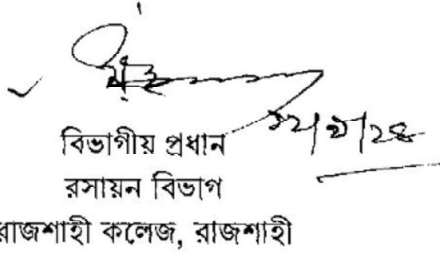 বিভাগীয় প্রধান
রসায়ন বিভাগ
রাজশাহী কলেজ, রাজশাহী